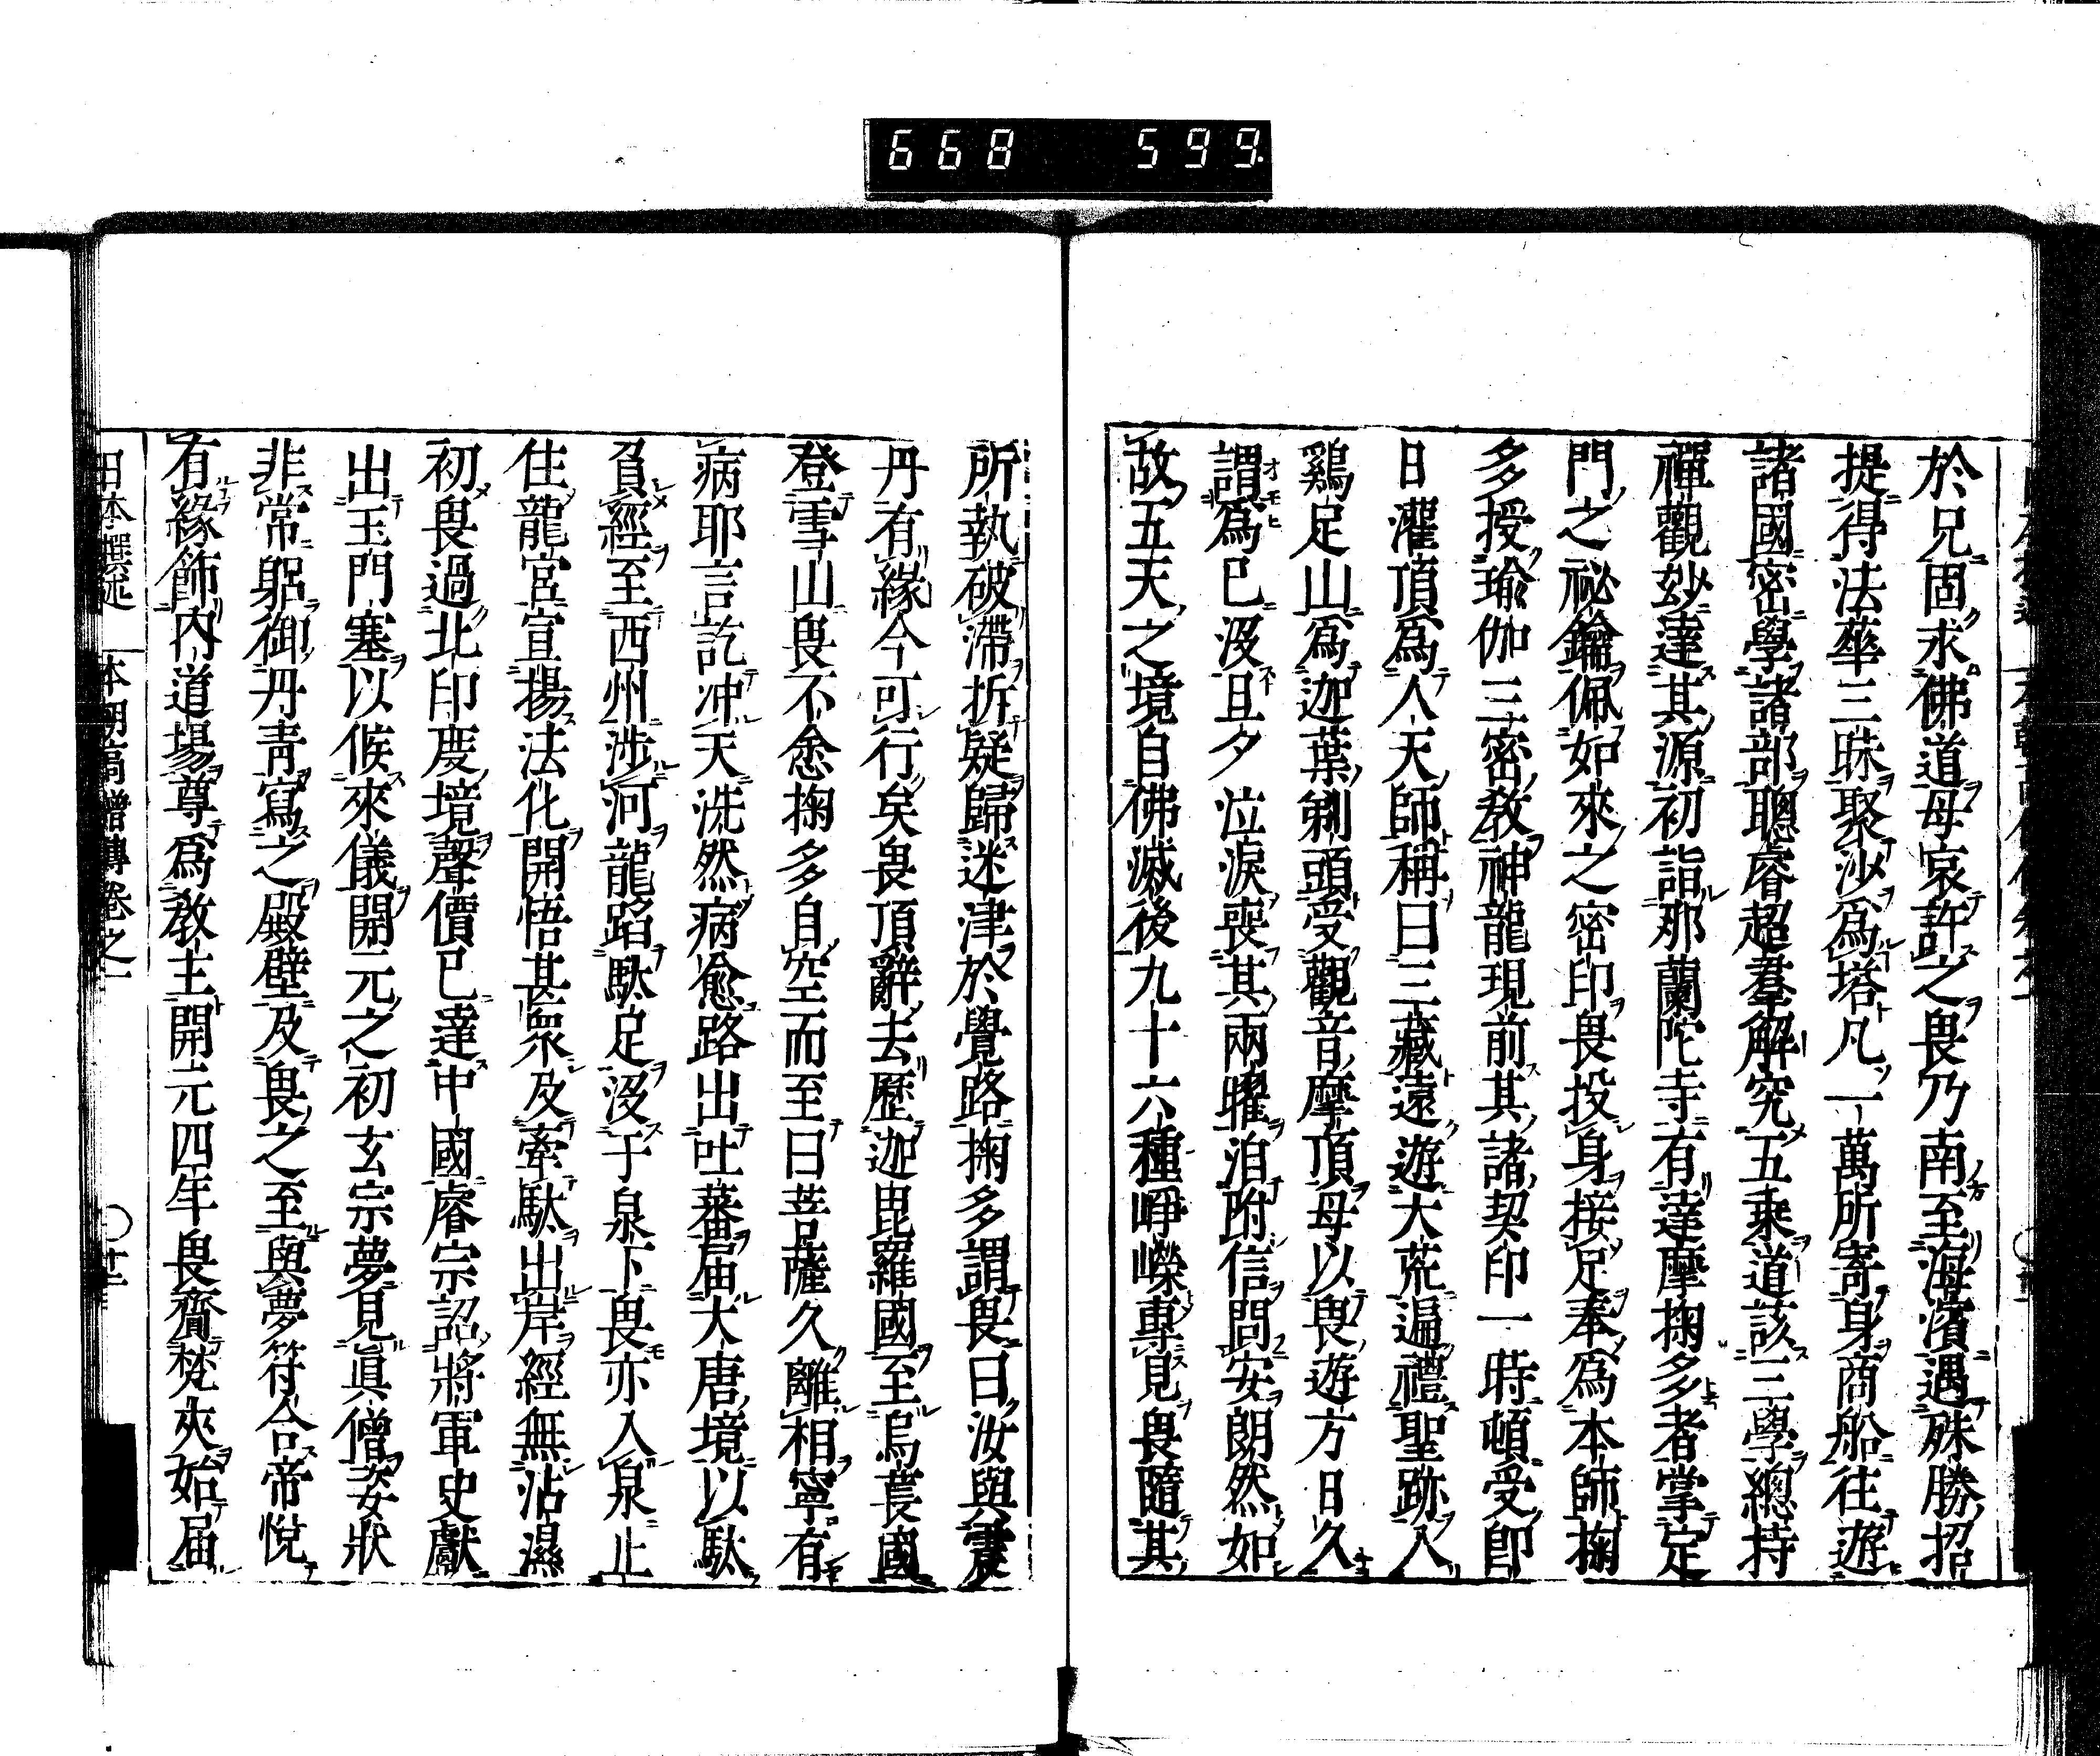 668 599.
於兄固求佛道母哀許之畏乃南至海濱遇殊勝招
提得法華三昧聚沙爲塔凡一萬所寄身商船往遊
諸國密學諸部聰睿超羣解究五乘道該三學總持
禪觀玅達其源初詣那蘭陀寺有達摩掬多者掌定
門之祕鑰佩如來之密印畏投身接足奉爲本師掬
多授瑜伽三密教神龍現前其諸契印一時頓受即
日灌頂爲人天師稱曰三藏遠遊大荒遍禮聖跡入
鷄足山爲迦葉剃頭受觀音摩頂母以畏遊方日久
謂爲已沒旦夕泣淚喪其兩曜洎附信問安朗然如
故五天之境自佛滅後九十六種崢嶸專見畏隨其
所執破滯折疑歸迷津於覺路掬多謂畏曰汝與震
丹有緣今可行矣畏頂辭去歷迦毘羅國至烏萇國
登雪山畏不悆掬多自空而至曰菩薩久離相寧有
病耶言訖冲天洗然病愈路出吐蕃届大唐境以駄
負經至西州涉河龍蹈駄足沒于泉下畏亦入泉止
住龍宮宣揚法化開悟甚衆及牽駄出岸經無沾濕
初畏過北印度境聲價已達中國睿宗詔將軍史獻
出玉門塞以候來儀開元之初玄宗夢見眞僧姿狀
非常躬御丹青寫之殿壁及畏之至與夢符合帝悅
有緣飾內道場尊爲教主開元四年畏齎梵夾始届
日本撰述 本朝高僧傳卷之一 〇廿二